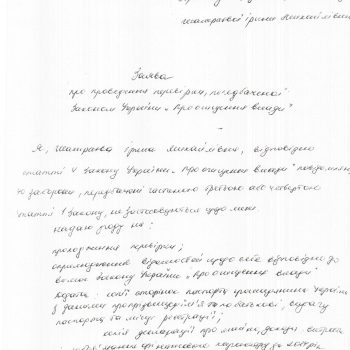 Ірини Михайлівни
Заява
про проведення перевірки, передбаченої
Законом України „Про очищення влади"
Я, Ірина Михайлівна, відповідно
статті 4 Закону України „Про очищення влади" повідомляю,
що заборони, передбачені частиною третьою або четвертою
статті 1 Закону, не застосовуються щодо мене.
Надаю згоду на:
проходження перевірки;
оприлюднення відомостей щодо себе відповідно до
вимог Закону України „Про очищення влади"
Додатки: копії сторінок паспорта громадянина України
з даними про прізвище, ім'я та по батькові, видачу
паспорта та місце реєстрації;
копія декларації про майно, доходи, витрати